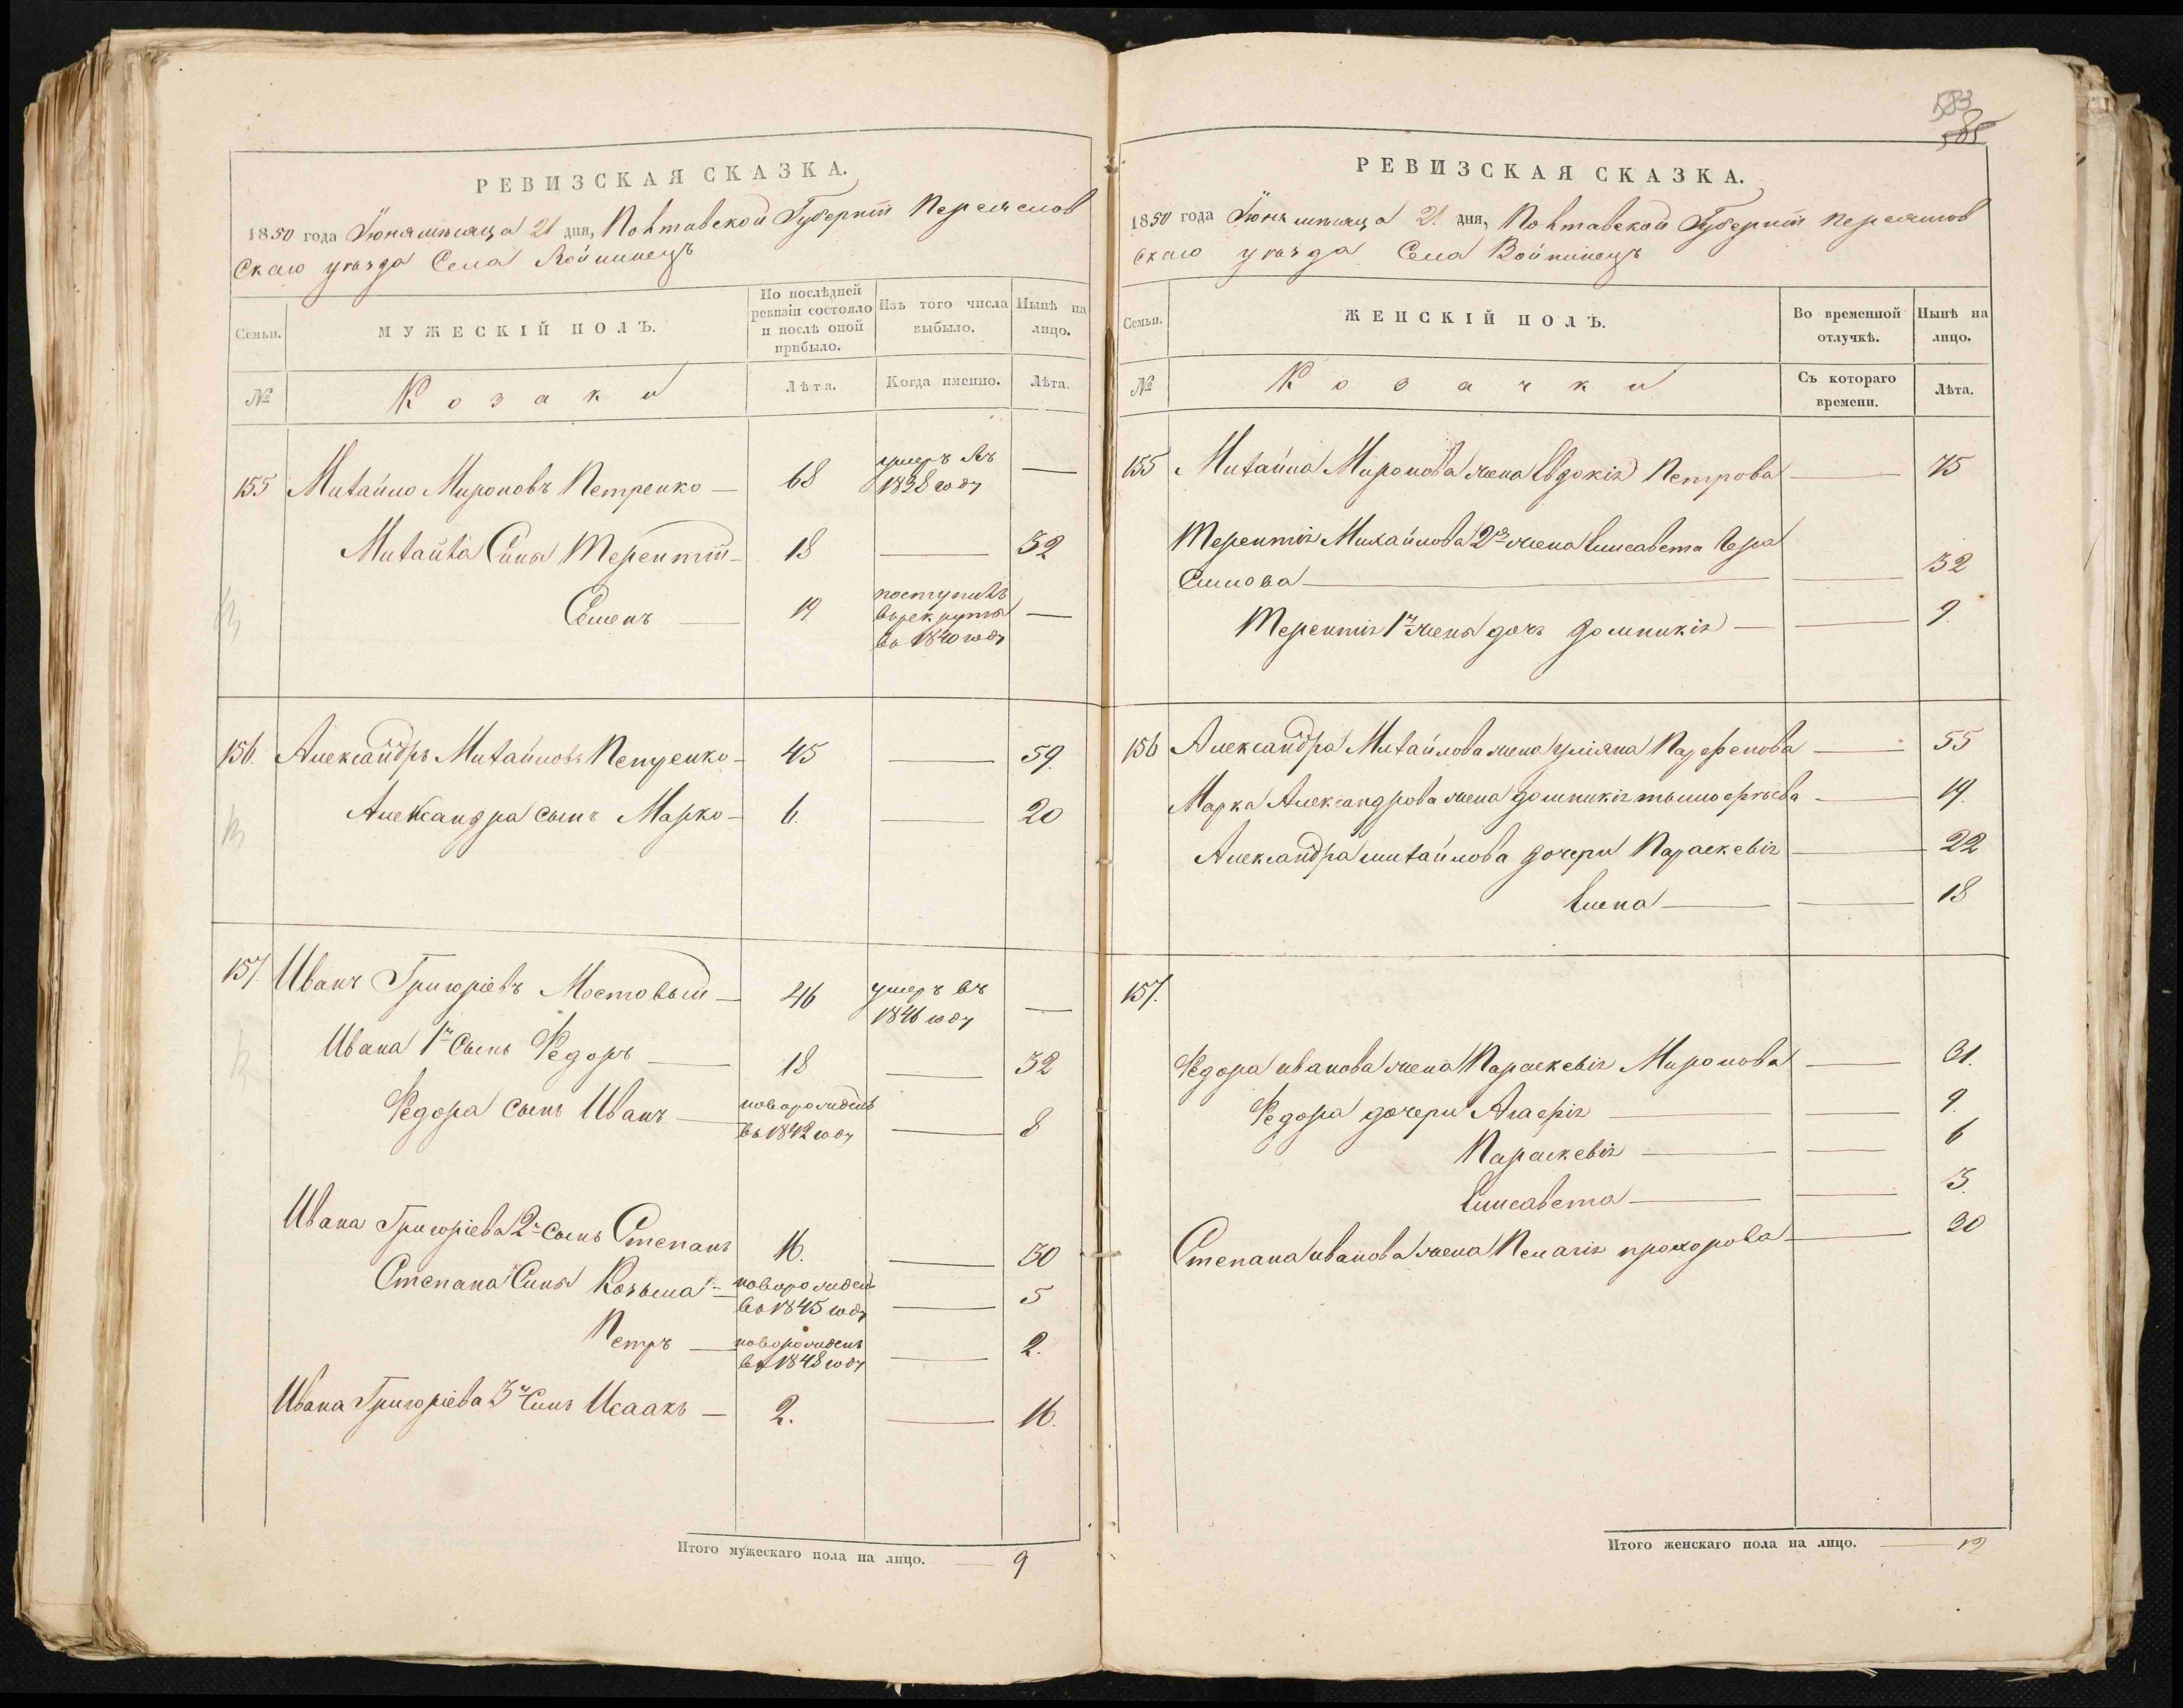 РЕВИЗСКАЯ СКАЗКА.
1850 года Іюня мѣсяца 21 дня, Полтавской Губерніи Переяслов
скаго уѣзда Села Войнинецъ
Семьи.
МУЖЕСКІЙ ПОЛЪ.
По послѣдней
ревизіи состояло
и послѣ оной
прибыло.
Изъ того числа
выбыло.
Нынѣ на
лицо.
№
Козаки
Лѣта.
Когда именно.
Лѣта.
155 Михайло Мироновъ Петренко — 68 умеръ въ —
1838 году
Михайла Сины Терентій — 18 — 32
Семенъ — 19 поступилъ —
въ рекруты
въ 1840 году
156. Александръ Михайловъ Петренко — 45 — 59.
Александра сынъ Марко — 6. — 20
157. Иванъ Григоріевъ Мостовый — 46 умеръ въ —
1846 году
Ивана 1й сынъ Федоръ — 18 — 32
Федора сынъ Иванъ — новорожденъ — 8
въ 1842 году
Ивана Григоріева 2й сынъ Степанъ 16. — 30
Степана Сины Козьма — новорожден — 5
въ 1845 году
Петръ — новорожденъ — 2.
въ 1848 году
Ивана Григоріева 3й Синъ Исаакъ — 2. — 16.
Итого мужескаго пола на лицо. — 9
583
585
РЕВИЗСКАЯ СКАЗКА.
1850 года Іюня мѣсяца 21 дня, Полтавской Губерніи Переяслов
скаго уѣзда Села Войнинецъ
Семьи.
ЖЕНСКІЙ ПОЛЪ.
Во временной
отлучкѣ.
Нынѣ на
лицо.
№
Козачки
Съ котораго
времени.
Лѣта.
155 Михайла Миронова жена Евдокія Петрова — 75
Терентія Михайлова 2я жена Елисавета Гера
симова — — 32
Терентія 1й жены дочь Домникія — — 9.
156 Александра Михайлова жена Уліяна Парфенова — 55
Марка Александрова жена Домникія Тымоефъева — 19.
Александра Михайлова дочери Параскевія — 22
Елена — — 18
157.
Федора Иванова жена Параскевія Миронова — 31.
Федора дочери Агафія — — 9.
Параскевія — — 6
Елисавета — — 3.
Степана Иванова жена Пелагія Прохорова — 30
Итого женскаго пола на лицо. — 12